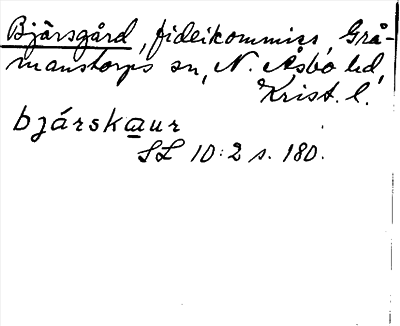 Bjärsgård, fideikommiss, Grå-
manstorps sn, N. Åsbo hd,
Krist. l.
bjársk<u>a</u>ur
SL 10:2 s. 180.